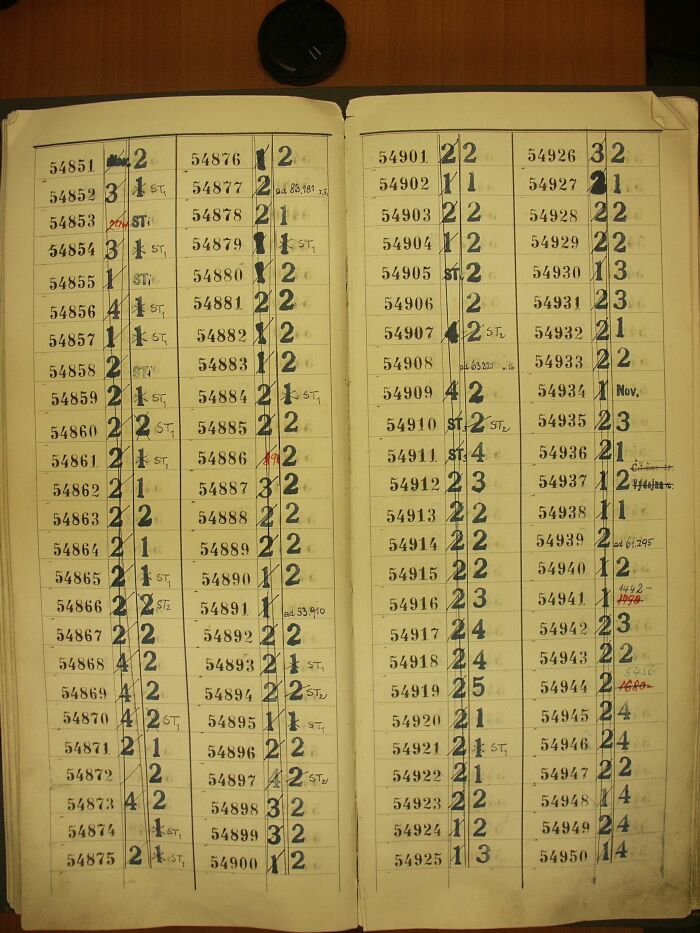 54851 Nov. 2
54852 3 1 ST1
54853 ST1
54854 3 1 ST1
54855 1 ST1
54856 4 1 ST1
54857 1 1 ST1
54858 2 ST1
54859 2 1 ST1
54860 2 2 ST1
54861 2 1 ST1
54862 2 1
54863 2 2
54864 2 1
54865 2 1 ST1
54866 2 2 ST2
54867 2 2
54868 4 2
54869 4 2
54870 4 2 ST1
54871 2 1
54872 2
54873 4 2
54874 1 ST1
54875 2 1 ST1
54876 1 2
54877 2 od 83,181
54878 2 1
54879 1 1 ST1
54880 1 2
54881 2 2
54882 1 2
54883 1 2
54884 2 1 ST1
54885 2 2
54886 2
54887 3 2
54888 2 2
54889 2 2
54890 1 2
54891 1 od 53,910
54892 2 2
54893 2 1 ST1
54894 2 2 ST2
54895 1 1 ST1
54896 2 2
54897 4 2 ST2
54898 3 2
54899 3 2
54900 1 2
54901 2 2
54902 1 1
54903 2 2
54904 1 2
54905 ST. 2
54906 2
54907 4 2 ST2
54908 od 63221
54909 4 2
54910 ST. 2 ST2
54911 ST. 4
54912 2 3
54913 2 2
54914 2 2
54915 2 2
54916 2 3
54917 2 4
54918 2 4
54919 2 5
54920 2 1
54921 2 1 ST1
54922 2 1
54923 2 2
54924 1 2
54925 1 3
54926 3 2
54927 2 1
54928 2 2
54929 2 2
54930 1 3
54931 2 3
54932 2 1
54933 2 2
54934 1 Nov.
54935 2 3
54936 2 1
54937 1 2
54938 1 1
54939 2 od 61,295
54940 1 2
54941 1 1442- 1790-
54942 2 3
54943 2 2
54944 2 5456 1680-
54945 2 4
54946 2 4
54947 2 2
54948 1 4
54949 2 4
54950 1 4